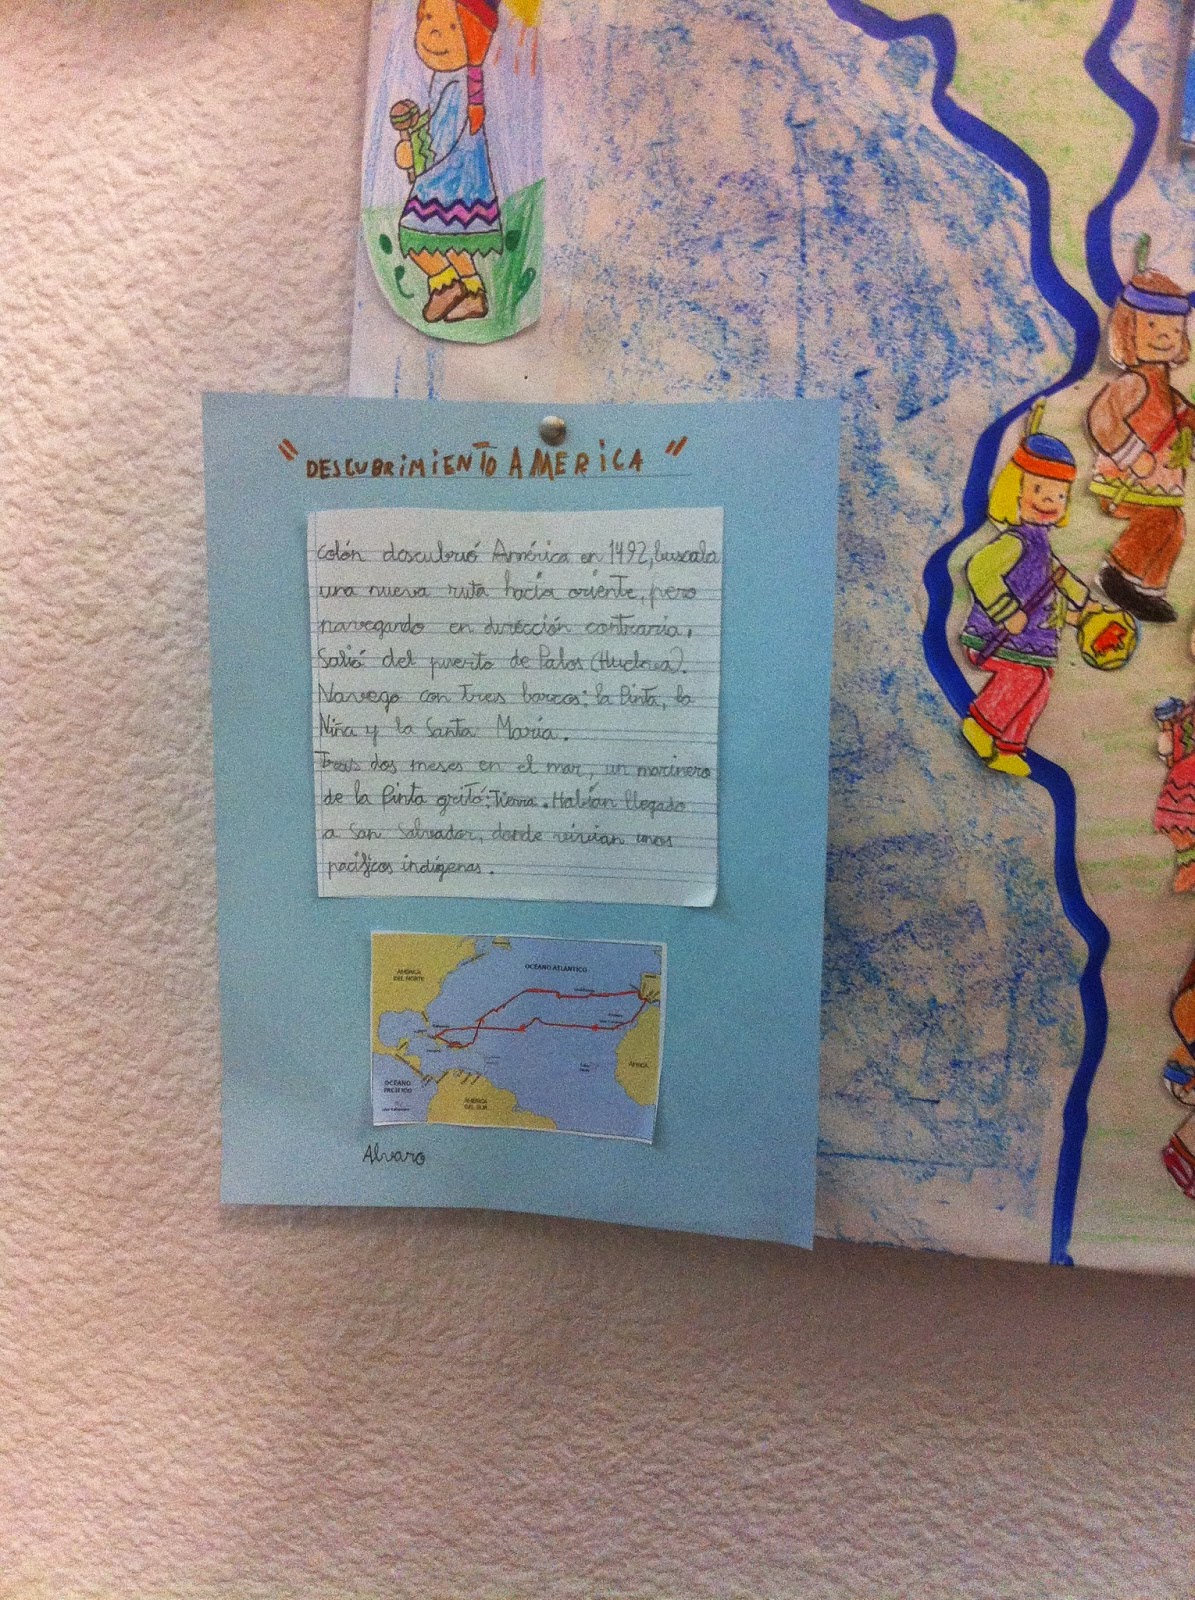 "DESCUBRIMIENTO AMERICA"
Colón descubrió América en 1492, buscaba
una nueva ruta hacia oriente, pero
navegando en dirección contraria.
Salió del puerto de Palos (Huelva).
Navego con tres barcos: la Pinta, la
Niña y la Santa María.
Tras dos meses en el mar, un marinero
de la Pinta gritó: Tierra. Habían llegado
a San Salvador, donde vivian unos
pacíficos indígenas.
OCÉANO ATLÁNTICO
AMÉRICA
DEL NORTE
ÁFRICA
OCÉANO
PACÍFICO
AMÉRICA
DEL SUR
Alvaro